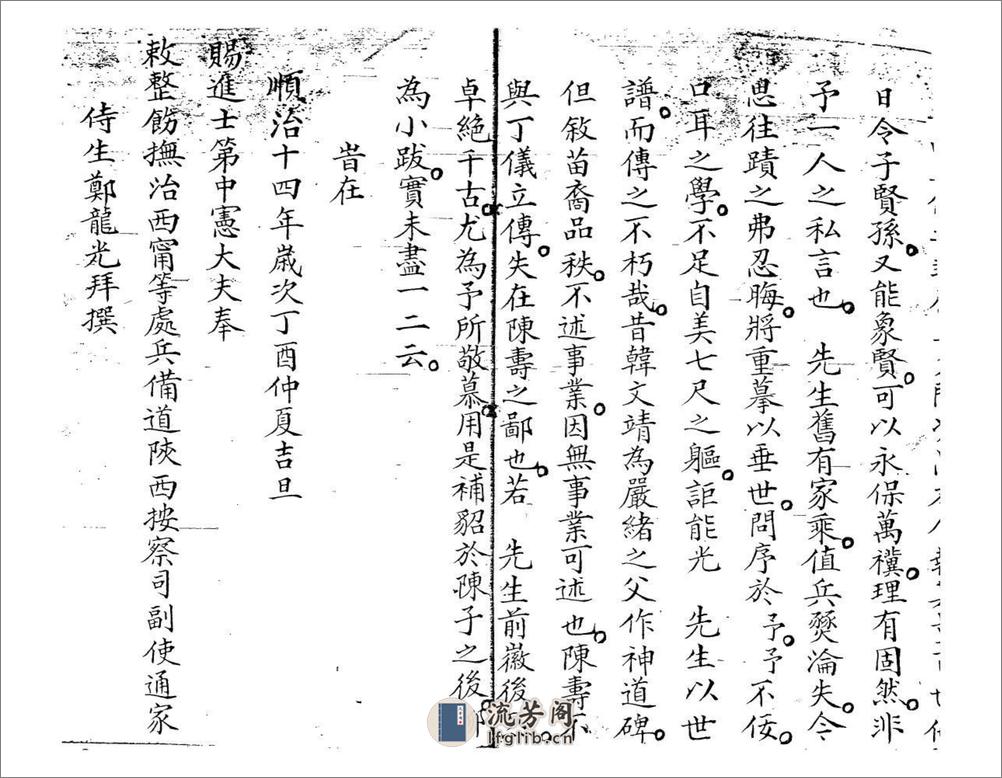 日令子賢孫。又能象賢。可以永保萬禩。理有固然。非
予一人之私言也。　先生舊有家乘。值兵燹淪失。今
思往蹟之弗忍晦。將重摹以垂世。問序於予。予不佞。
口耳之學。不足自美七尺之軀。詎能光　先生以世
譜。而傳之不朽哉。昔韓文靖為嚴緒之父作神道碑。
但敘苗裔品秩。不述事業。因無事業可述也。陳壽不
與丁儀立傳。失在陳壽之鄙也。若　先生前徽後
卓絕千古。尤為予所敬慕。用是補貂於陳子之後。
為小跋。實未盡一二云。
旹在
順治十四年歲次丁酉仲夏吉旦
賜進士第中憲大夫奉
敕整飭撫治西甯等處兵備道陝西按察司副使通家
侍生鄭龍光拜撰
流芳阁
lfglib.cn